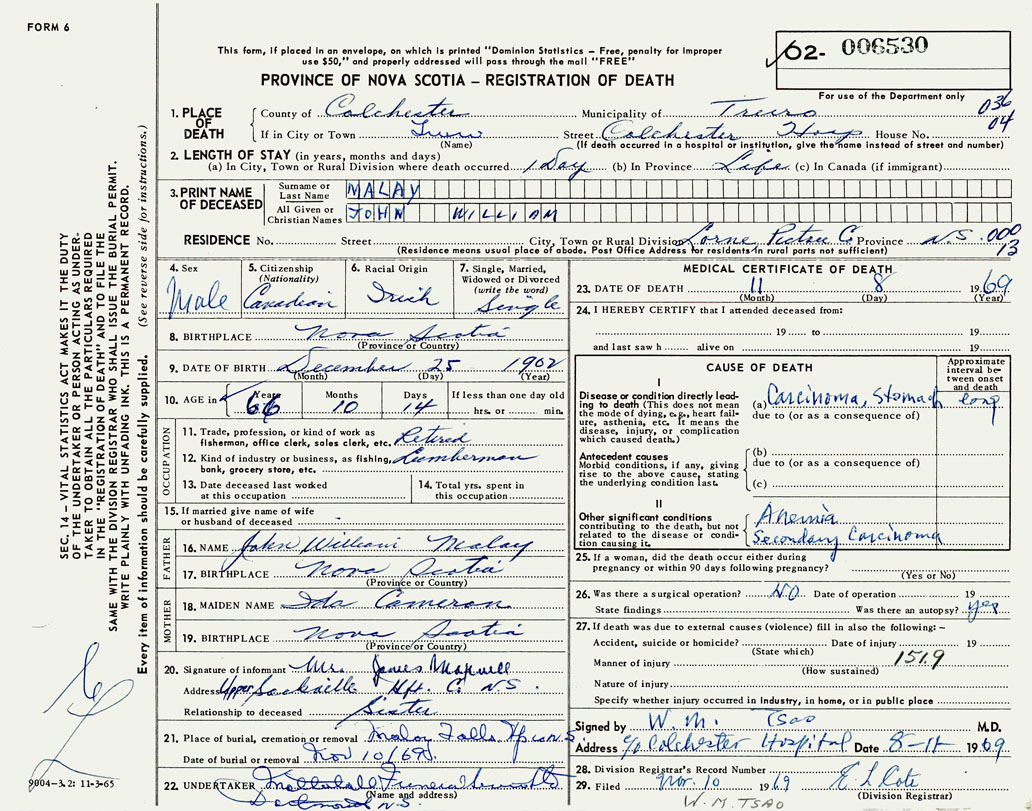 FORM 6
This form, if placed in an envelope, on which is printed "Dominion Statistics – Free, penalty for improper
use $50," and properly addressed will pass through the mail "FREE"
62- 006530
For use of the Department only
PROVINCE OF NOVA SCOTIA – REGISTRATION OF DEATH
036
04
1. PLACE OF DEATH
County of Colchester Municipality of Truro
If in City or Town Truro Street Colchester Hosp. House No.
(Name) (If death occurred in a hospital or institution, give the name instead of street and number)
2. LENGTH OF STAY (in years, months and days)
(a) In City, Town or Rural Division where death occurred 1 Day (b) In Province Life (c) In Canada (if immigrant)
3. PRINT NAME OF DECEASED
Surname or Last Name MALAY
All Given or Christian Names JOHN WILLIAM
RESIDENCE No. Street City, Town or Rural Division Lorne Pictou C. Province N.S. 000
13
(Residence means usual place of abode. Post Office Address for residents in rural parts not sufficient)
4. Sex Male
5. Citizenship (Nationality) Canadian
6. Racial Origin Irish
7. Single, Married, Widowed or Divorced (write the word) Single
8. BIRTHPLACE Nova Scotia
(Province or Country)
9. DATE OF BIRTH December 25 1902
(Month) (Day) (Year)
10. AGE in Years 66 Months 10 Days 14 If less than one day old
hrs. or min.
OCCUPATION
11. Trade, profession, or kind of work as
fisherman, office clerk, sales clerk, etc. Retired
12. Kind of industry or business, as fishing, Lumberman
bank, grocery store, etc.
13. Date deceased last worked
at this occupation
14. Total yrs. spent in
this occupation
15. If married give name of wife
or husband of deceased
FATHER
16. NAME John William Malay
17. BIRTHPLACE Nova Scotia
(Province or Country)
MOTHER
18. MAIDEN NAME Ida Cameron
19. BIRTHPLACE Nova Scotia
(Province or Country)
20. Signature of informant Mrs. James Maxwell
Address Upper Sackville Hfx. C. N.S.
Relationship to deceased Sister
21. Place of burial, cremation or removal Falls N.S.
Date of burial or removal Nov 10/69
22. UNDERTAKER Funeral
(Name and address)
N.S.
MEDICAL CERTIFICATE OF DEATH
23. DATE OF DEATH 11 8 1969
(Month) (Day) (Year)
24. I HEREBY CERTIFY that I attended deceased from:
19 to 19
and last saw h alive on 19
CAUSE OF DEATH
Approximate interval between onset and death
I
Disease or condition directly lead-
ing to death (This does not mean
the mode of dying, e.g., heart fail-
ure, asthenia, etc. It means the
disease, injury, or complication
which caused death.)
(a) Carcinoma, Stomach long
due to (or as a consequence of)
Antecedent causes
Morbid conditions, if any, giving
rise to the above cause, stating
the underlying condition last.
(b)
due to (or as a consequence of)
(c)
II
Other significant conditions
contributing to the death, but not
related to the disease or condi-
tion causing it.
Anemia
Secondary Carcinoma
25. If a woman, did the death occur either during
pregnancy or within 90 days following pregnancy?
(Yes or No)
26. Was there a surgical operation? NO Date of operation 19
State findings Was there an autopsy? yes
27. If death was due to external causes (violence) fill in also the following: –
Accident, suicide or homicide? Date of injury 19
(State which)
Manner of injury 151.9
(How sustained)
Nature of injury
Specify whether injury occurred in industry, in home, or in public place
Signed by W. M. Tsao M.D.
Address c/o Colchester Hospital Date 8-11 1969
28. Division Registrar's Record Number
29. Filed Nov. 10 1969
(Division Registrar)
W. M. TSAO
SEC. 14 – VITAL STATISTICS ACT MAKES IT THE DUTY
OF THE UNDERTAKER OR PERSON ACTING AS UNDER-
TAKER TO OBTAIN ALL THE PARTICULARS REQUIRED
IN THE "REGISTRATION OF DEATH" AND TO FILE THE
SAME WITH THE DIVISION REGISTRAR WHO SHALL ISSUE THE BURIAL PERMIT.
WRITE PLAINLY WITH UNFADING INK. THIS IS A PERMANENT RECORD.
Every item of information should be carefully supplied. (See reverse side for instructions.)
9004-3.2: 11-3-65